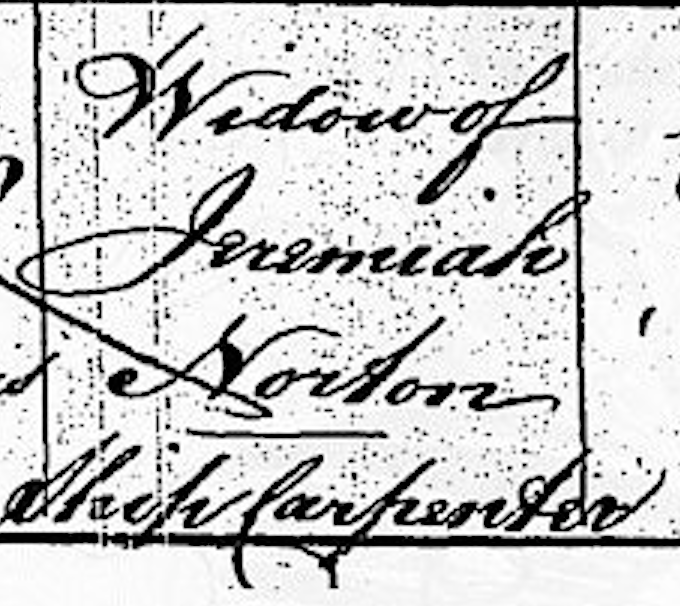 Widow of
Jeremiah
Norton
Ship Carpenter